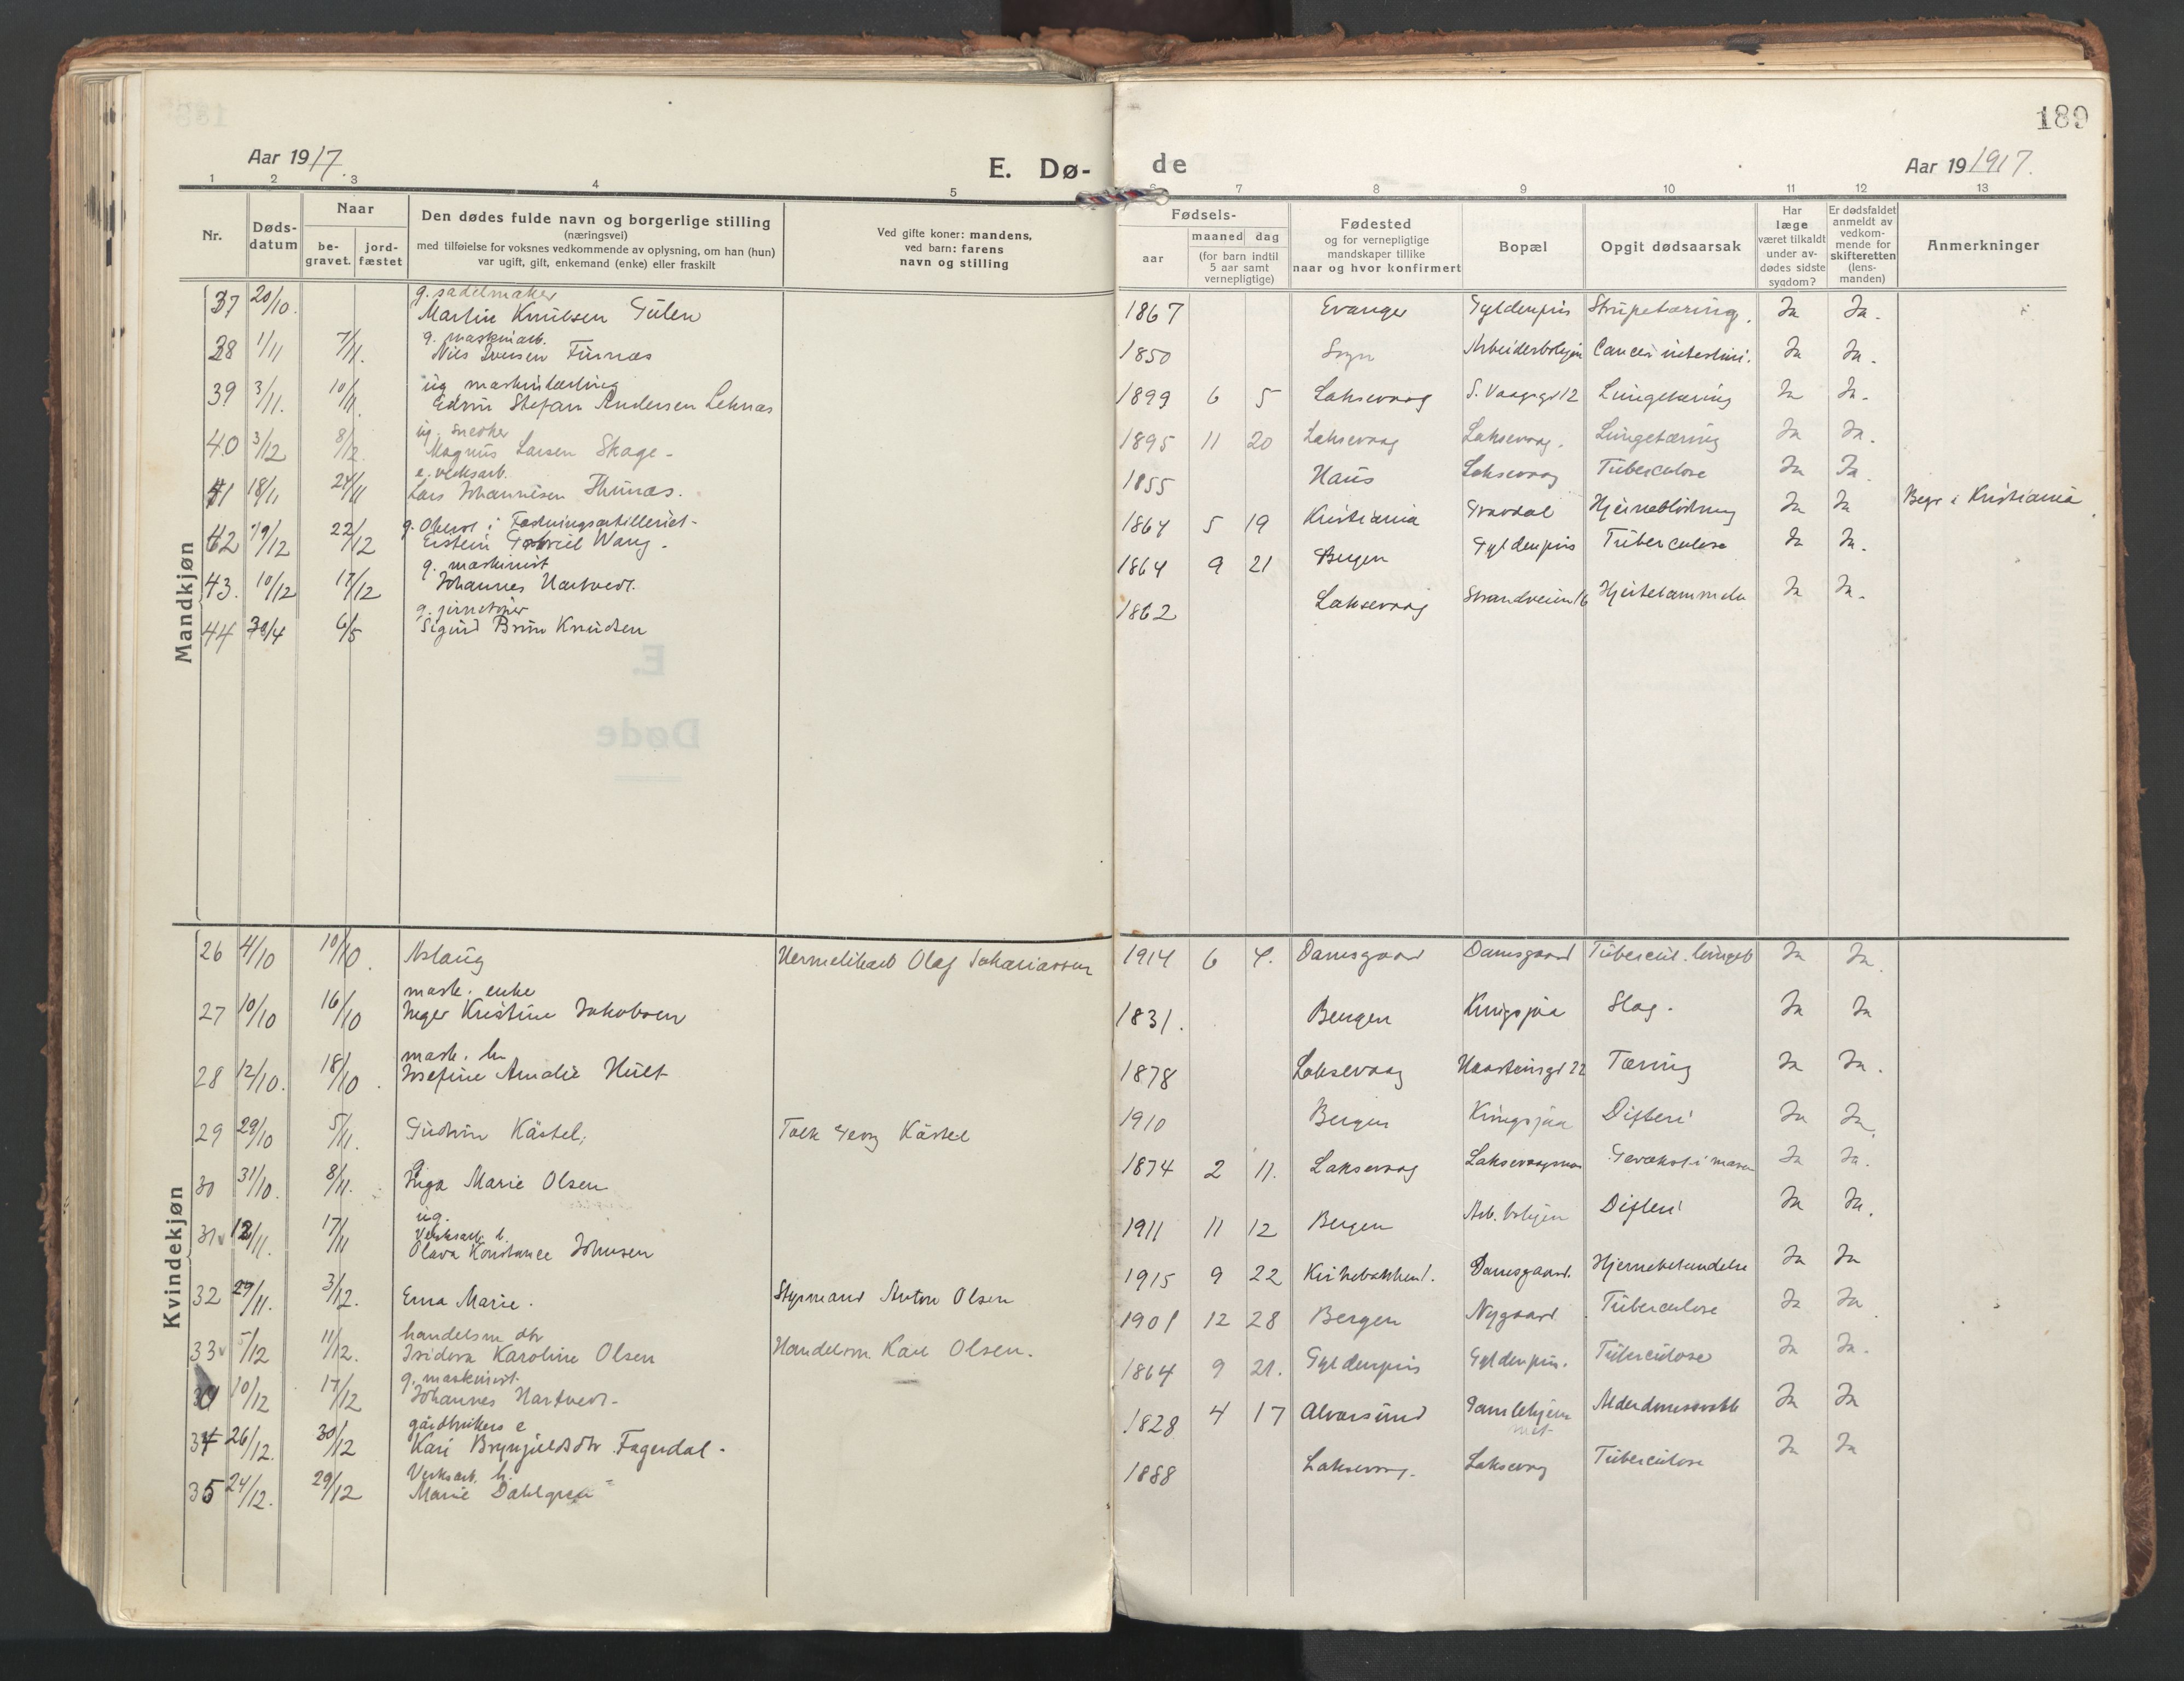 189
Aar 1917.
E. Dø-
de
Aar 19 1917.
1 2 3 4 5 6 7 8 9 10 11 12 13
Nr.
Døds-
datum
Naar
be-
gravet.
jord-
fæstet
Den dødes fulde navn og borgerlige stilling
(næringsvei)
med tilføielse for voksnes vedkommende av oplysning, om han (hun)
var ugift, gift, enkemand (enke) eller fraskilt
Ved gifte koner: mandens,
ved barn: farens
navn og stilling
Fødsels-
aar
maaned dag
(for barn indtil
5 aar samt
vernepligtige)
Fødested
og for vernepligtige
mandskaper tillike
naar og hvor konfirmert
Bopæl
Opgit dødsaarsak
Har
læge
været tilkaldt
under av-
dødes sidste
sygdom?
Er dødsfaldet
anmeldt av
vedkom-
mende for
skifteretten
(lens-
manden)
Anmerkninger
Mandkjøn
g. sadelmaker
37 20/10. Martin Knutsen Gülen 1867 Evanger Gyldenpris Strupetæring. Ja Ja.
g. maskinarb.
38 1/11 7/11. Nils Iversen Furnæs 1850 Sogn Arbeiderboligen Cancer intestini. Ja Ja.
ug maskinlærling
39 3/11. 10/11. Edvin Stefan Andersen Leknæs 1899 6 5 Laksevaag S. Vaagsgt 12 Lungetæring Ja Ja.
ug. snedker
40 3/12 8/12. Magnus Larsen Skage - 1895 11 20 Laksevaag Laksevaag. Lungetæring Ja Ja.
e. verksarb.
41 18/11 24/11 Lars Johannesen Thunæs. 1855 Haus Laksevaag Tuberculose Ja Ja.
g. Oberst i Fæstningsartilleriet-
42 19/12 22/12 Eistein Gabriel Wang. 1864 5 19 Kristiania Gravdal Hjerneblödning Ja Ja Begr i Kristiania.
g. maskinist
43. 10/12 17/12 Johannes Hartvedt. 1864 9 21 Bergen Gyldenpris Tuberculose Ja Ja.
44 30/4 6/5 Sigurd Brun Knudsen 1862 Laksevaag Strandveien 16 Hjertelammelse Ja Ja.
E.
Døde
Kvindekjøn
26 4/10 10/10. Aslaug Hermetikarb Olaf Sakariassen 1914 6 4. Damsgaard Damsgaard Tubercul. lunget Ja Ja.
mask. enke
27 10/10 16/10 Inger Kristine Jakobsen 1831. Bergen Kringsjaa Slag. Ja Ja
mask. h
28 12/10. 18/10. Josefine Amalie Hult 1878 Laksevaag Haasteinsgt 22 Tæring Ja Ja.
29 29/10 5/11. Gudrun Kästel, Tolk Georg Kästel 1910 Bergen Kringsjaa Difteri Ja Ja.
g.
30 31/10. 8/11. Inga Marie Olsen 1874 2 11. Laksevaag Laksevaagsnes Gevækst i maven Ja Ja.
ug.
Verksarb. h.
31 v 12/11. 17/11 Olava Konstance Johnsen 1911 11 12 Bergen Arb. boligen Difteri Ja Ja.
32 29/11. 3/12. Erna Marie. Styrmand Anton Olsen 1915 9 22 Kirkebakken 1. Damsgaard. Hjernebetændelse Ja Ja
handelsm dtr
33 v 5/12 11/12. Isidora Karoline Olsen Handelsm. Karl Olsen. 1901 12 28 Bergen Nygaard Tuberculose Ja Ja.
g. maskinist
34 10/12 17/12 Johannes Hartvedt- 1864 9 21. Gyldenpris Gyldenpris. Tuberculose Ja Ja.
gårdbrukers e
34 26/12. 30/12 Kari Brynjulfsdtr Fagerdal - 1828 4 17 Alversund Gamlehjem Alderdomssvakh Ja Ja
met
Verksarb. h.
35 24/12. 29/12 Marie Dahlgren 1888 Laksevaag. Laksevaag Tuberculose Ja Ja